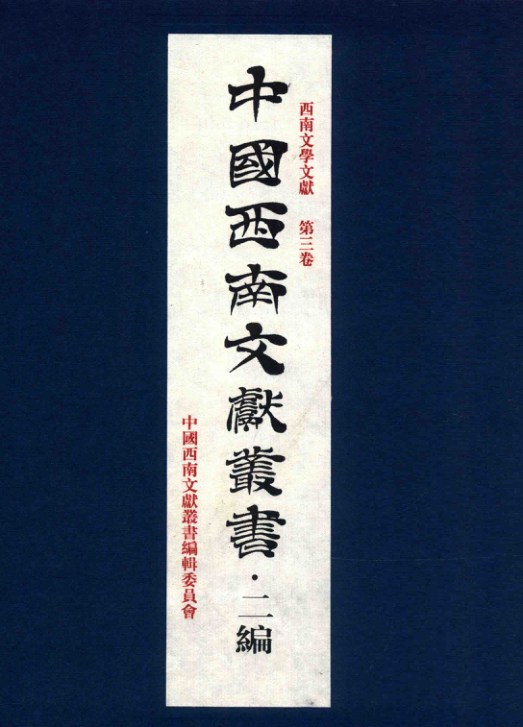 西南文學文獻 第三卷
中國西南文獻叢書·二編
中國西南文獻叢書編輯委員會